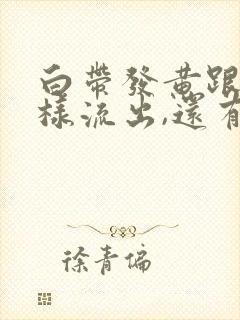 白帶發黃跟
樣流出,還有
徐青偏